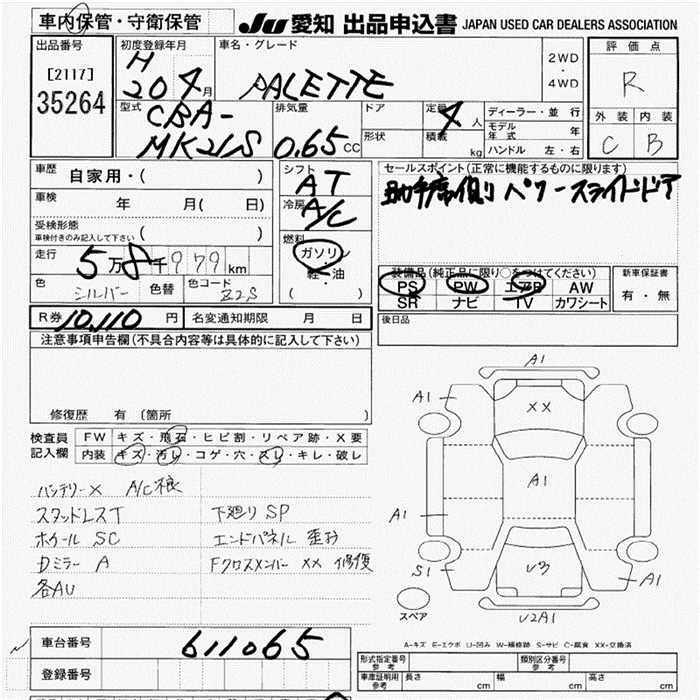 車内保管・守衛保管
JU 愛知 出品申込書 JAPAN USED CAR DEALERS ASSOCIATION
出品番号
[2117]
35264
初度登録年月
H
20 4月
車名・グレード
PALETTE
2WD
・
4WD
評価点
R
外装 内装
C B
型式
CBA-
MK21S
排気量
0.65 CC
ドア
形状
定員
4人
積載
kg
ディーラー・並行
モデル年式 年
ハンドル 左・右
車歴
自家用・( )
車検 年 月( 日)
受検形態
車検付きのみ記入して下さい ( )
走行 5万8千979km
色 シルバー 色替 色コード Z2S
シフト
AT
冷房
A/C
燃料
ガソリン
軽・油
( )
セールスポイント(正常に機能するものに限ります)
助手席側リ パワースライドドア
装備品(純正品に限り○をつけてください)
PS PW エアB AW
SR ナビ TV カワシート
新車保証書
有・無
R券 10,110 円 名変通知期限 月 日
後日品
注意事項申告欄(不具合内容等は具体的に記入して下さい)
修復歴 有(箇所 )
検査員
記入欄
FW キズ・飛石・ヒビ割・リペア跡・X要
内装 キズ・汚レ・コゲ・穴・スレ・キレ・破レ
バッテリーX A/C
スタッドレスT 下廻り SP
ホイール SC エンドパネル 歪み
Dミラー A Fクロスメンバー XX 修復
各AU
A1
A1
XX
A1
A1
S1
U3
A1
U2A1
スペア
A-キズ E-エクボ U-凹み W-補修跡 S-サビ C-腐食 XX-交換済
車台番号 611065
登録番号
形式指定番号
参考
類別区分番号
参考
車庫証明用
参考
長さ cm 幅 cm 高さ cm